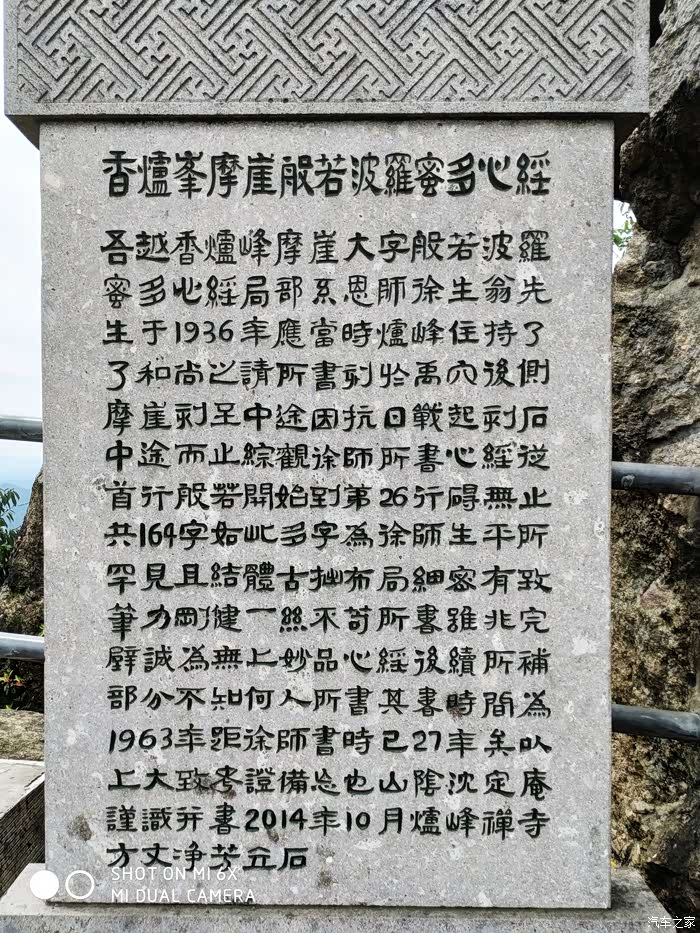 香爐峯摩崖般若波羅蜜多心經
吾越香爐峰摩崖大字般若波羅
蜜多心經局部系恩師徐生翁先
生于1936年應當時爐峰住持了
了和尚之請所書刻於禹穴後側
摩崖刻至中途因抗日戰起刻石
中途而止綜觀徐師所書心經從
首行般若開始到第26行礙無止
共164字如此多字為徐師生平所
罕見且結體古拙布局細密有致
筆力剛健一絲不苟所書雖非完
壁誠為無上妙品心經後續所補
部分不知何人所書其書時間為
1963年距徐師書時已27年矣以
上大致考證備忘也山陰沈定庵
謹識并書2014年10月爐峰禪寺
方丈净芳立石
SHOT ON MI 6X
MI DUAL CAMERA
汽车之家